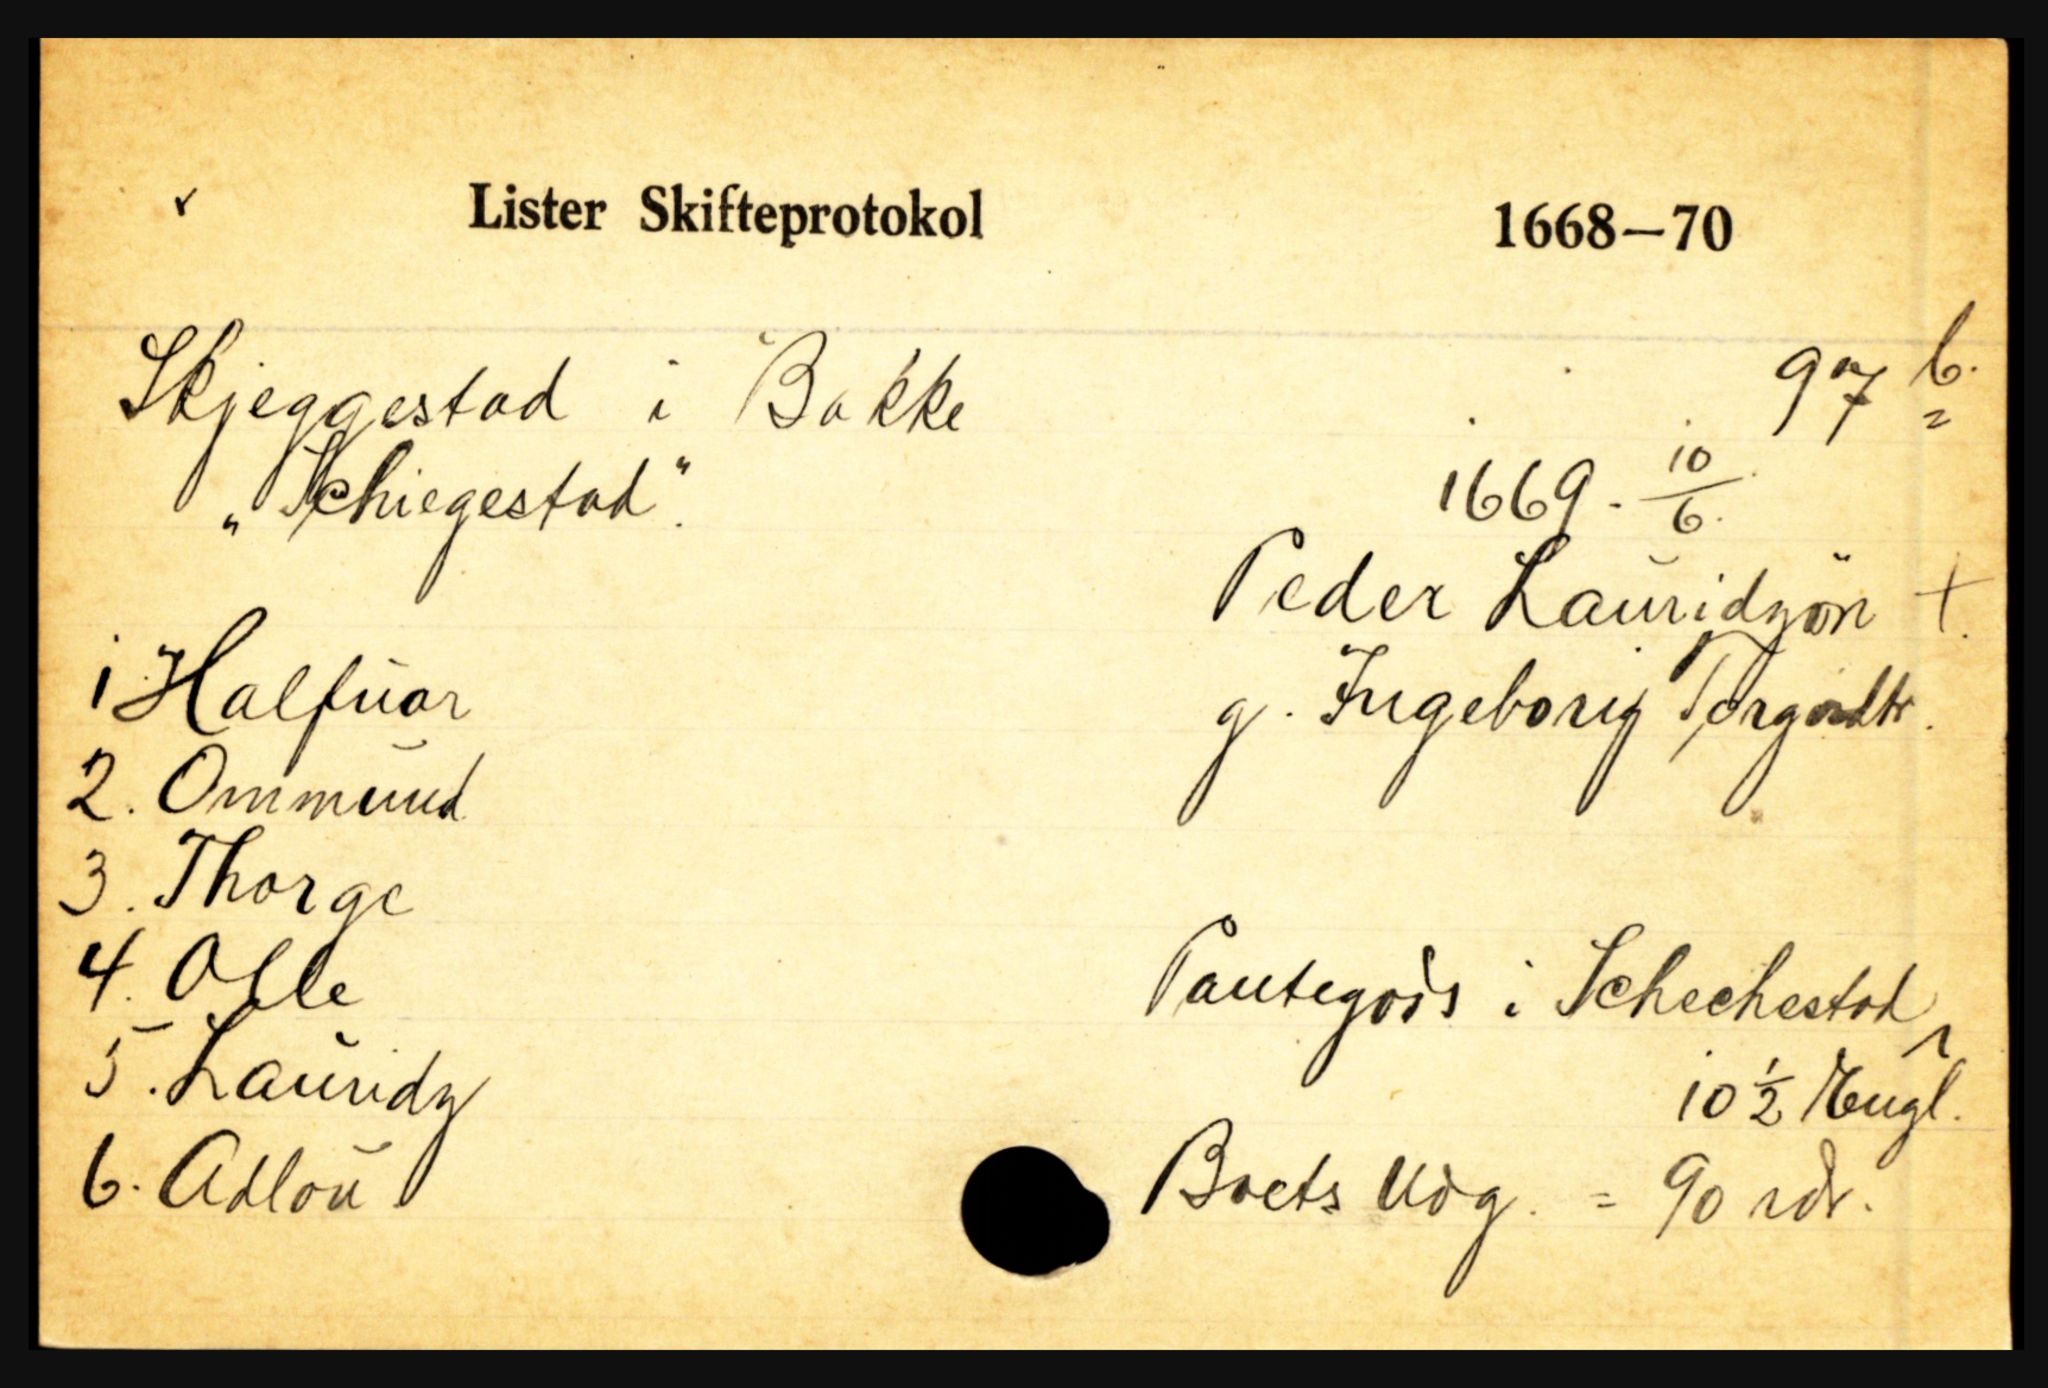 Lister Skifteprotokol 1668—70
Skjeggestad i Bakke 97 b.
"Schiegestad". 1669. 10/6.
Peder Lauridzön +
g. Ingeborig Torgiedtr.
1. Halfuor
2. Ommund
3. Thorge
4. Olle
5. Lauridz
6. Adlou
Pantegods i Schechestad
10 1/2 Engl.
Boets Udg. = 90 rdr.